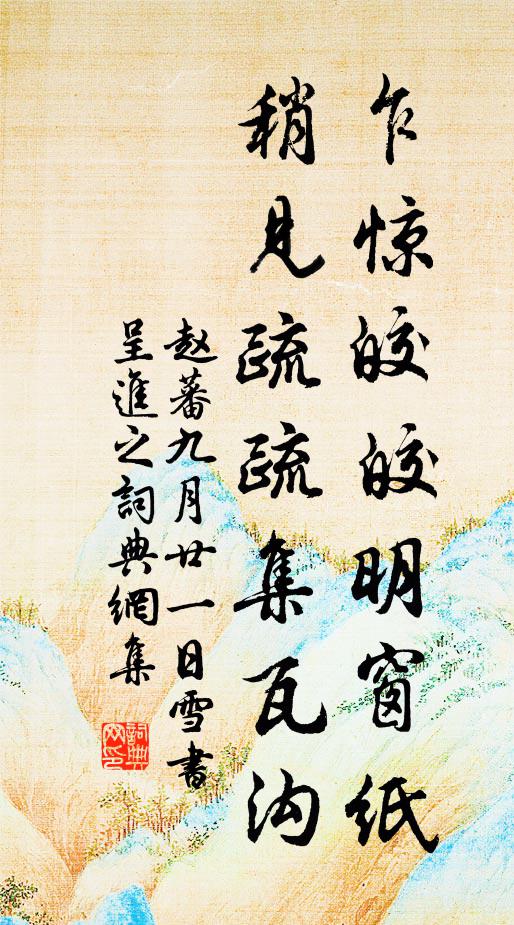 乍惊皎皎明窗纸
稍见疏疏集瓦沟
赵蕃九月廿一日雪书
呈進之詞典網集
詞典网印